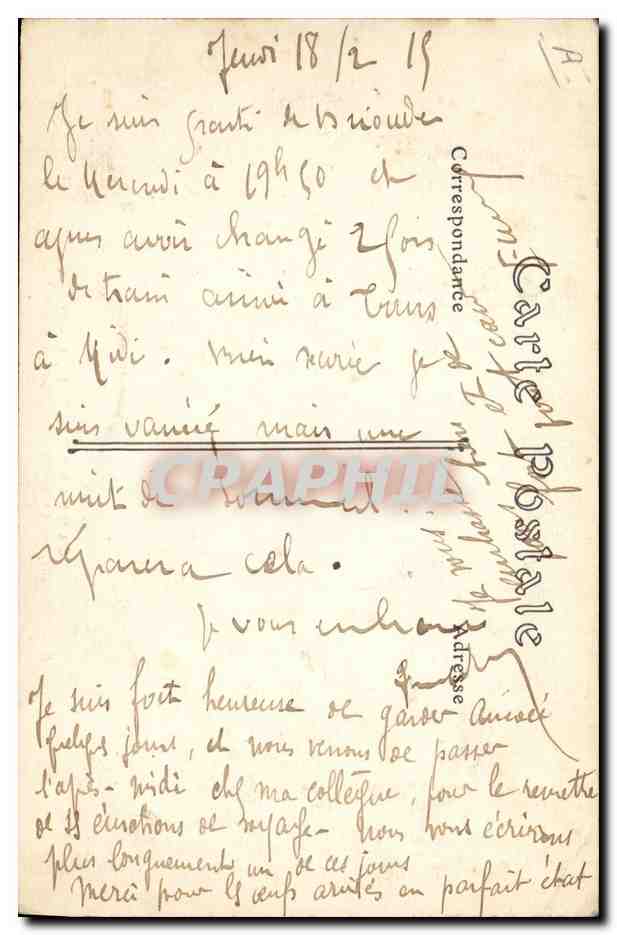 Jeudi 18/2 15
A
Je suis parti de Brioude
le Mercredi à 19h50 et
apres avoir changé 2 fois
de train arrivé à Tours
à Midi. Bien je
suis vanné mais une
nuit de sommeil
réparera cela.
Je vous embrasse
Je suis fort heureuse de garder
quelques jours, et nous venons de passer
l'après-midi chez ma collègue, pour le remettre
de ses émotions de voyage - Nous vous écrirons
plus longuement un de ces jours
Merci pour les œufs arrivés en parfait état
Carte Postale
Correspondance
Adresse
CPAPHIL